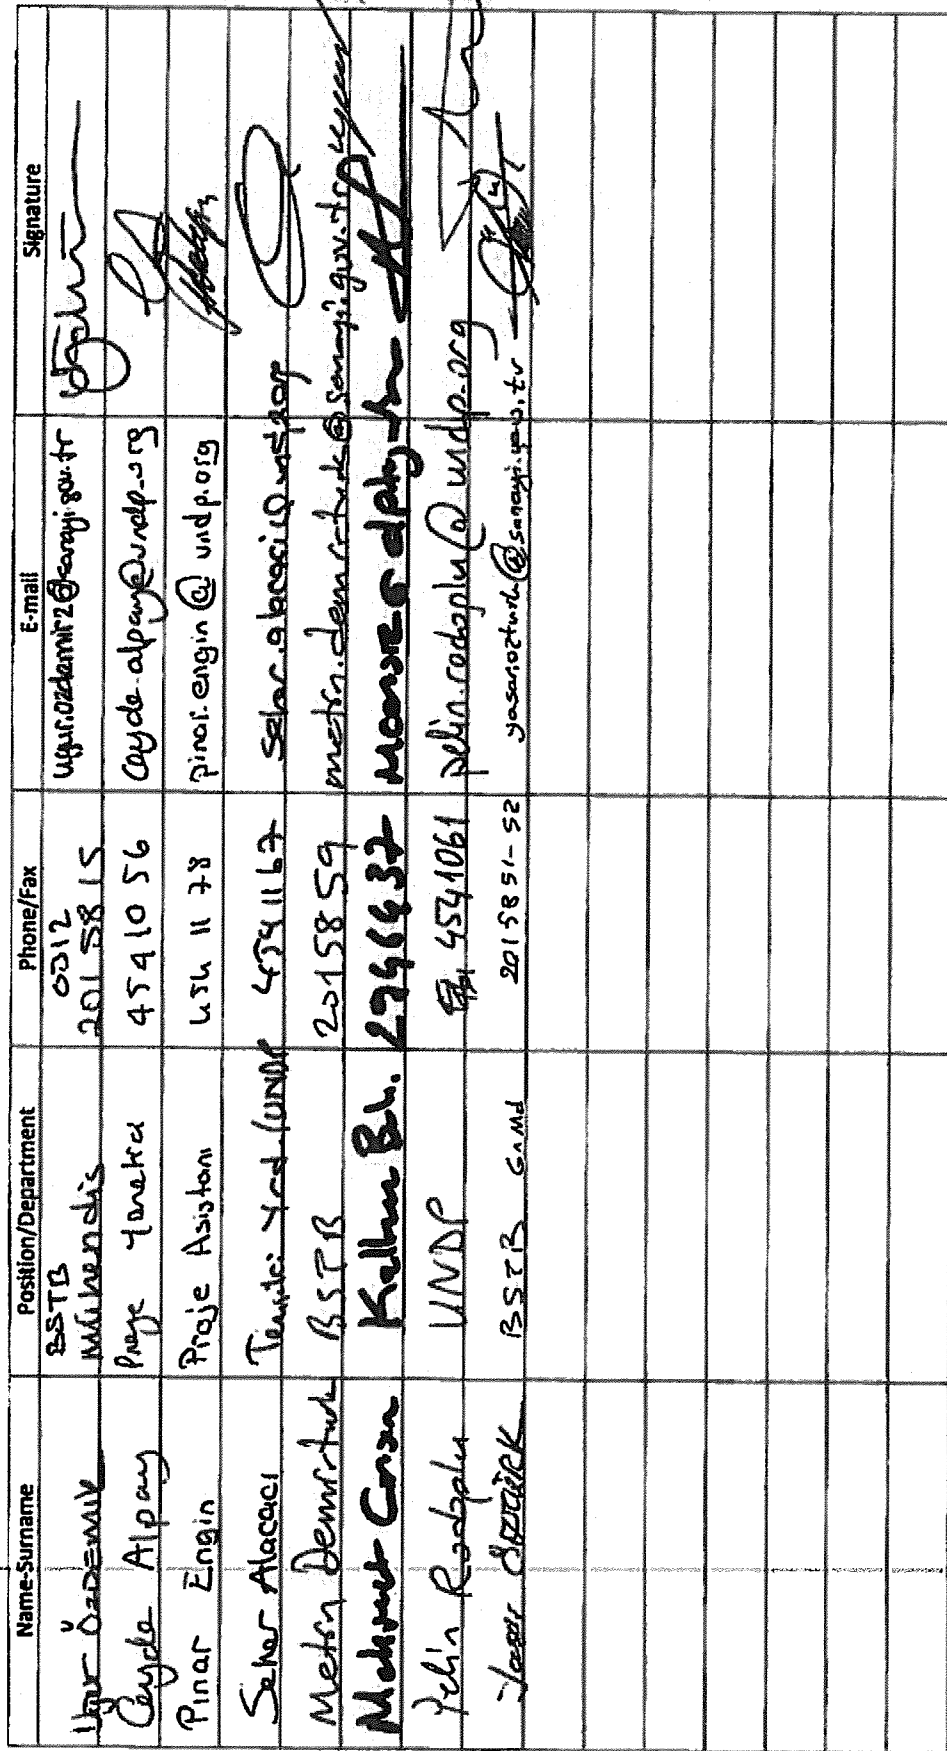 Name-Surname Position/Department Phone/Fax E-mail Signature
Uğur ÖZDEMİR BSTB Mühendis 0312 2015815 ugur.ozdemir2@sanayi.gov.tr
Ceyda Alpay Proje 4541056 ceyda.alpay@undp.org
Pınar Engin Proje Asistanı 454 11 78 pinar.engin@undp.org
Seher Alacacı Temsilci Yrd. (UNDP 4541167
Metin Demirtürk BSTB 2015859 metin.demirturk@sanayi.gov.tr
Mehmet Kalkın Bak. 2946437
Pelin Rodoplu UNDP 4541061 pelin.rodoplu@undp.org
Yaşar ÖZTÜRK BSTB 2015851-52 yasar.ozturk@sanayi.gov.tr